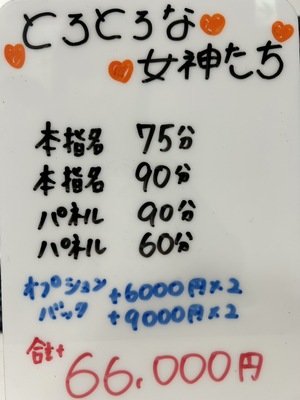 とろとろな
女神たち
本指名 75分
本指名 90分
パネル 90分
パネル 60分
オプション +6000円×2
バック +9000円×2
合計 66.000円